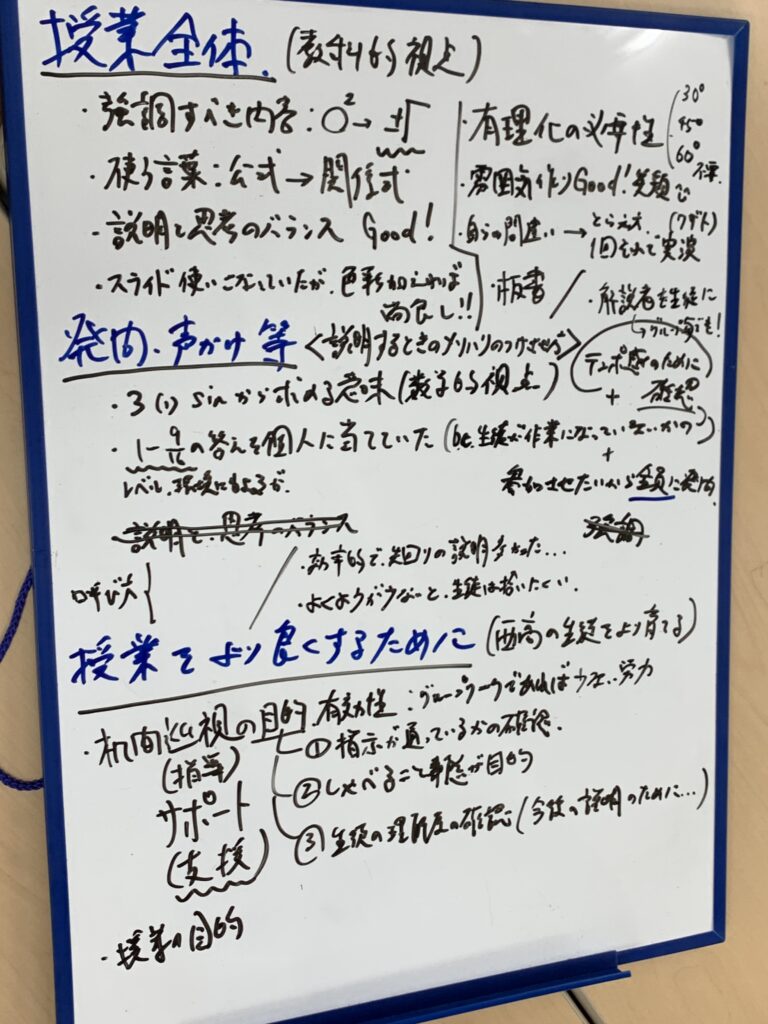 授業全体. (教科的視点)
・強調すべき内容:○²→±√
・使う言葉:公式→関係式
・説明と思考のバランス Good!
・スライド使いこなしていたが、色彩加えれば
尚良し!!
・有理化の必要性
30°
45°
60°
・雰囲気作りGood!笑顔
・自らの間違い→とらえ方..(ワザト)
1回されて実演
・板書
・解説者を生徒に
→グループ演習でも!
発問・声かけ等 <説明するときのメリハリのつけさせ方>
テンポ感のために
+ 確認
・3(1) sinから求める意味(数学的視点)
・1-9/16の答えを個人に当てていた(bc.生徒が作業になっていないかの)
レベル、環境にもよるが.
+
参加させたいから全員に発問
説明と思考のバランス
強調
呼び方
・効率的で、遠回りの説明多かった...
・よくようが少ないと、生徒は拾いにくい.
授業をより良くするために (西高の生徒をより育てる)
・机間巡視の目的、有効性:グループワークであれば少ない労力
(指導)
サポート
(支援)
①指示が通っているかの確認.
②しゃべること自体が目的
③生徒の理解度の確認(今後の説明のために...)
・授業の目的